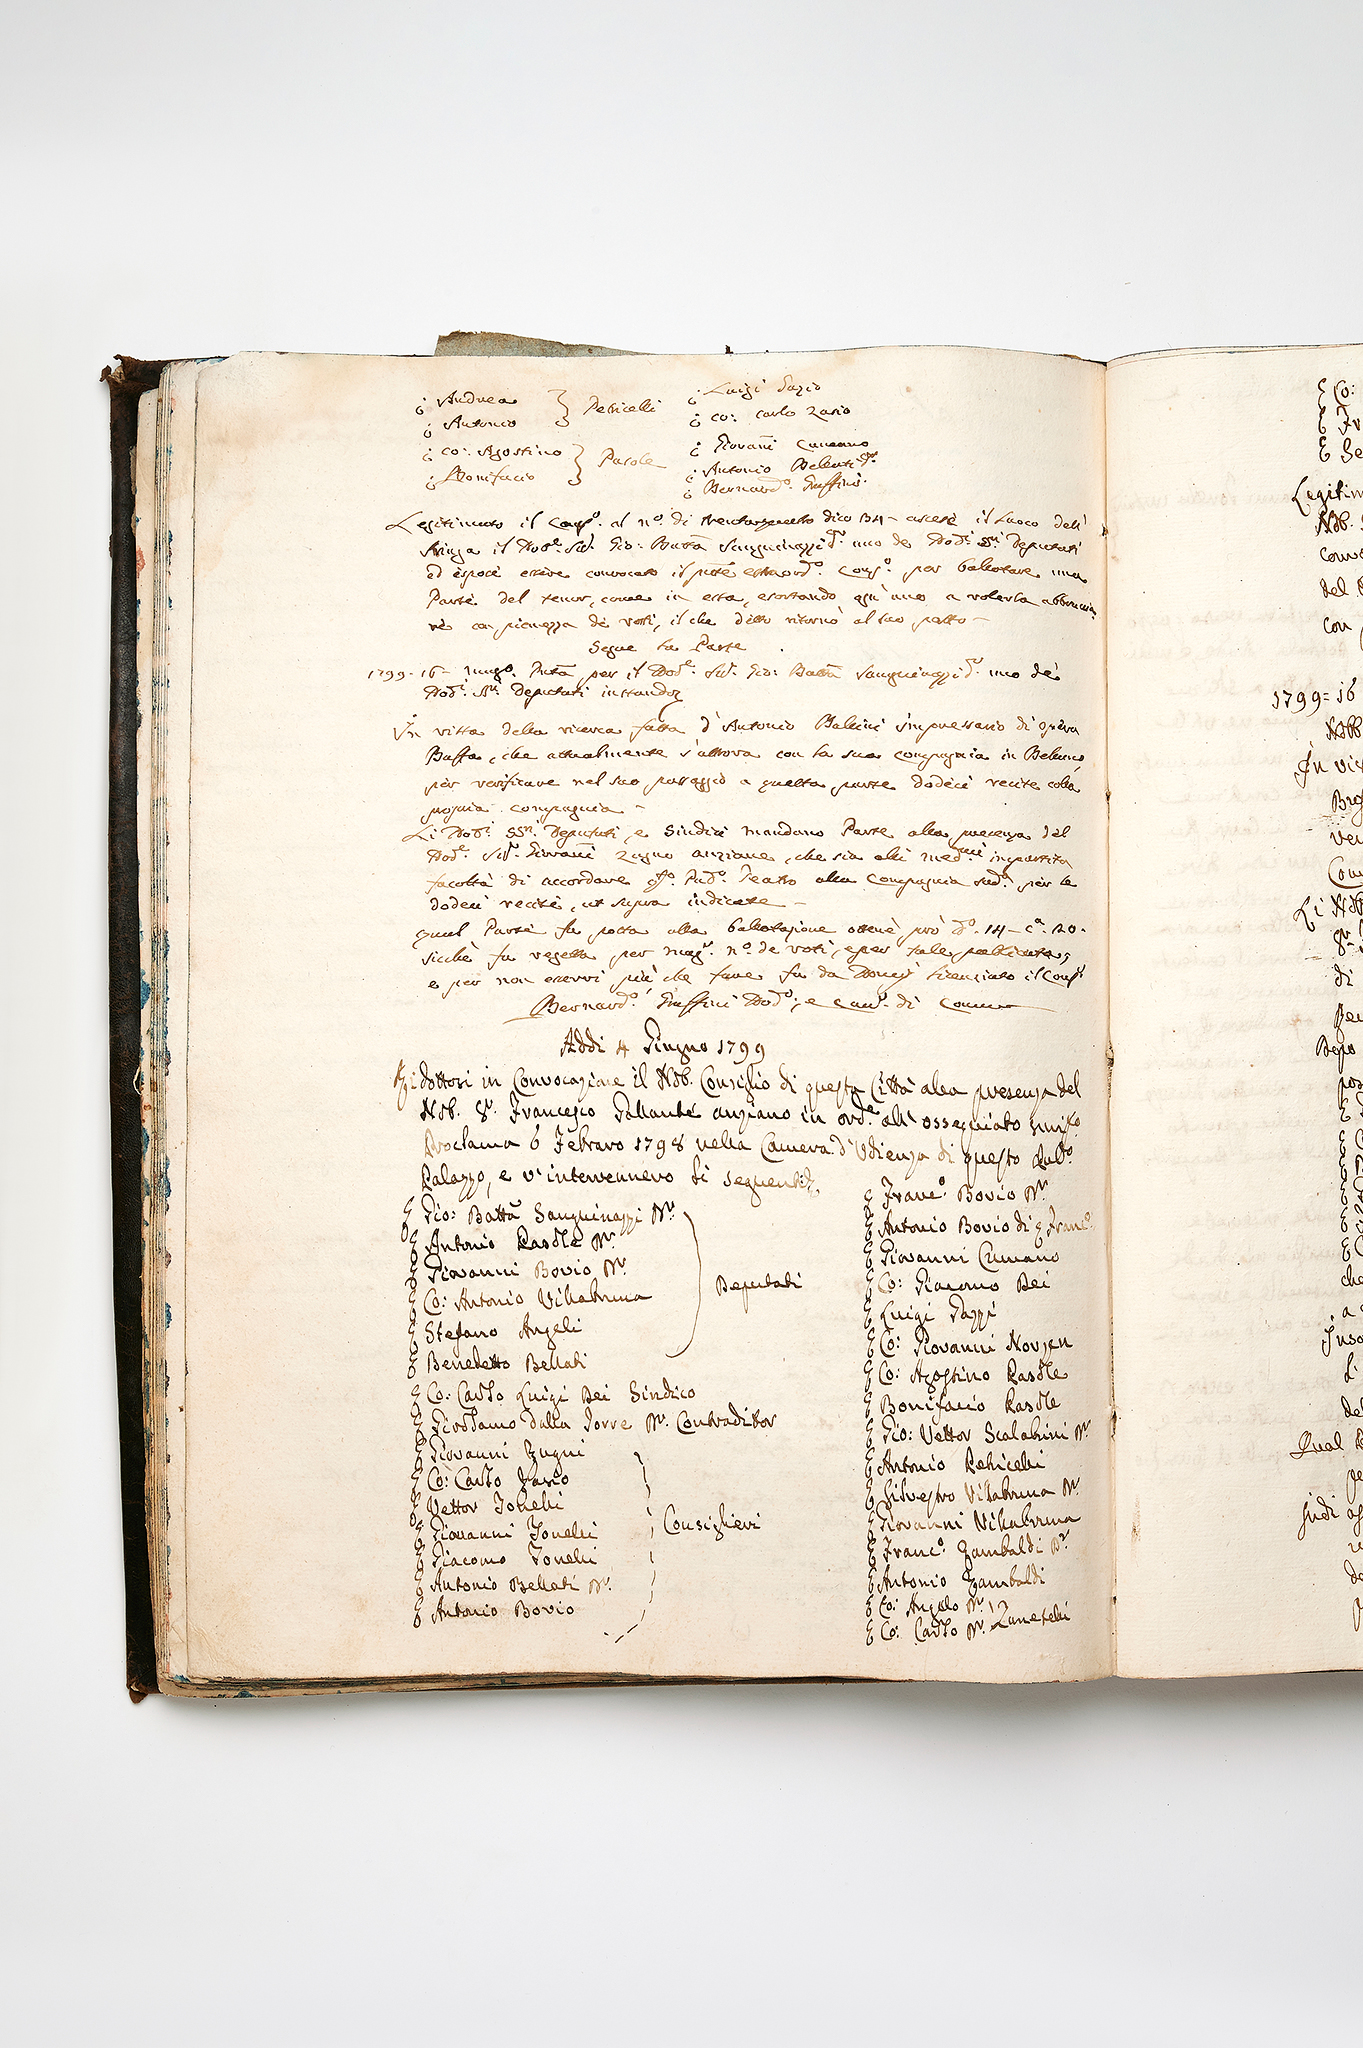 Andrea
Antonio } Petricelli
co: Agostino
Bonifacio } Pasole
Luigi Pazio
co: Carlo Zasio
Giovañi Cumano
Antonio Bellati Dr.
Bernardo. Ruffini
Legitimato il Congo. al no. di trentaquatro dico 34 - ascese il Luoco dell'
Aringa il Nobe. Sigr. Gio: Batta Sanguinazzi Dr. uno de Nobi. Sri. Deputati
ed espose essere convocato il pnte estraordo. Congo. per balotare una
Parte del tenor, come in essa, esortando ogn'uno a volerla abbraccia
re con pienezza de voti, il che detto ritornò al suo posto -
Segue la Parte
1799 - 16 - mago. Puta per il Nobe. Sigr. Gio: Batta Sanguinazzi Dr. uno de
Nobi. Sri. Deputati instando
In vista della ricerca fatta d'Antonio Ballini impressario di opera
Buffa, che attualmente s'attrova con la sua compagnia in Beluno,
per verificare nel suo passaggio a questa parte dodeci recite colla
propria compagnia -
Li Nobi. SSri. Deputati, e Sindici mandano Parte alla presenza del
Nobe. Sigr. Giovañi Zugno anziano, che sia alli medmi. impartita
facoltà di accordare qto. Pubo. Teatro alla Compagnia suda. per le
dodeci recite, ut supra indicate -
qual Parte fu posta alla balotazione ottene prò do. 14 - ca. 20 -
sicchè fu rejetta per magr. no. de voti, e per tale publicata,
e per non esservi più che fare fu da licenziato il Congo.
Bernardo. Ruffini Nodo., e Canr. di Comun
Addi 4 Giugno 1799
Ridottosi in Convocazione il Nob. Consiglio di questa Città alla presenza del
Nob. Sr. Francesco Tollante anziano in orde. all'ossequiato
Proclama 6 Febraro 1798 nella Camera d'Udienza di questo Pubo.
Palazzo, e v'intervennero li seguenti
Gio: Batta Sanguinazzi Dr.
Antonio Pasole Dr.
Giovanni Bovio Dr.
Co: Antonio Villabruna
Stefano Angeli
Benedetto Bellati
Deputati
Co: Carlo Luigi Dei Sindico
Girolamo dalla Torre Dr. Contraditor
Giovanni Zugni
Co: Carlo Zasio
Vettor Tonelli
Giovanni Tonelli
Giacomo Tonelli
Antonio Bellati Dr.
Antonio Bovio
Consiglieri
Franco. Bovio Dr.
Antonio Bovio di q Franco.
Giovanni Cumano
Co: Giacomo Dei
Luigi Pazzi
Co: Giovanni Novjen
Co: Agostino Pasole
Bonifacio Pasole
Gio: Vettor Scalabrini Dr.
Antonio Petricelli
Silvestro Villabruna Dr.
Giovanni Villabruna
Franco. Zambaldi Dr.
Antonio Zambaldi
Co: Angelo Dr.
Co: Carlo Dr. } Zanetelli
Co:
Fr
Se
Legitim
Nob.
conv
del
con
1799 = 16
Nob
In vis
ver
Com
Li Nob
Sr.
di
che
a
Qual